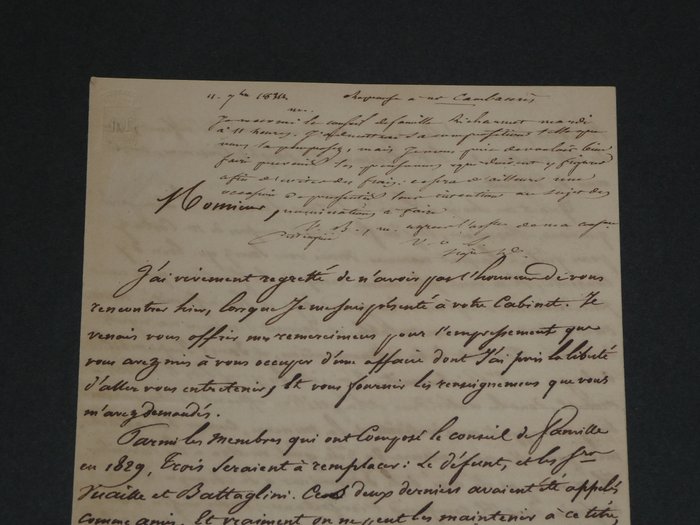 11. 7bre 1834. Réponse à mr Cambacérès
mr.
le conseil de famille Richermoz mardi
à 11 heures. J'admettrai sa composition telle que
vous la proposez; mais je vous prie de vouloir bien
faire prévenir les personnes qui doivent y figurer
afin d'éviter des frais. ce sera d'ailleurs une
occasion de leur intention au sujet des
nominations à faire.
Monsieur
J'ai vivement regretté de n'avoir pas l'honneur de vous
rencontrer hier, lorsque Je me suis présenté à votre Cabinet. Je
venais vous offrir mes remercimens pour l'empressement que
vous avez mis à vous occuper d'une affaire dont J'ai pris la liberté
d'aller vous entretenir, Et vous fournir les renseignemens que vous
m'avez demandés.
Parmi les membres qui ont Composé le conseil de famille
en 1829, Trois seraient à remplacer: Le défunt, et les Srs
Vuaille et Battaglini. Ces deux derniers avaient été appelés
comme amis, Et vraiment on ne peut les maintenir à ce titre